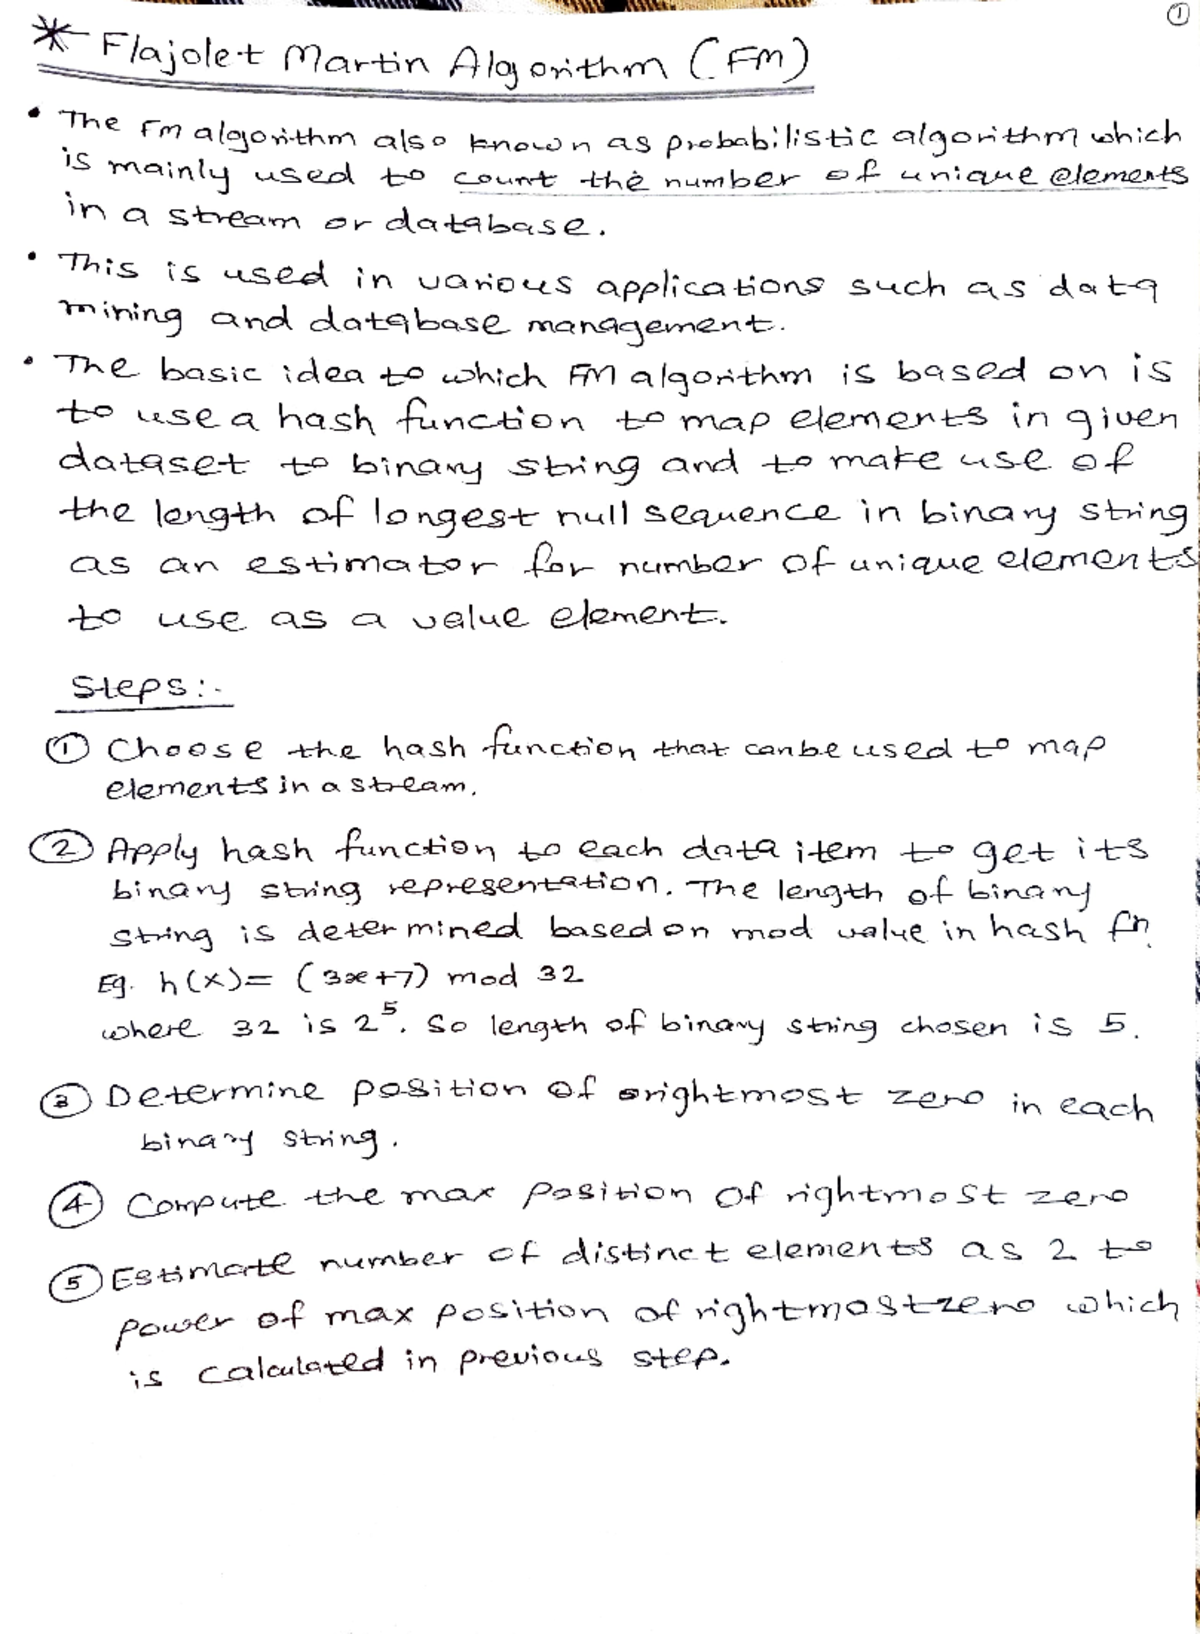 ①
* Flajolet Martin Algorithm (FM)
• The FM algorithm also known as probabilistic algorithm which
is mainly used to count the number of unique elements
in a stream or database.
• This is used in various applications such as data
mining and database management.
• The basic idea to which FM algorithm is based on is
to use a hash function to map elements in given
dataset to binary string and to make use of
the length of longest null sequence in binary string
as an estimator for number of unique elements
to use as a value element.
Steps:-
① Choose the hash function that can be used to map
elements in a stream.
② Apply hash function to each data item to get its
binary string representation. The length of binary
string is determined based on mod value in hash fn.
Eg. h(x) = (3x+7) mod 32
where 32 is 2⁵. So length of binary string chosen is 5.
③ Determine position of rightmost zero in each
binary string.
④ Compute the max position of rightmost zero
⑤ Estimate number of distinct elements as 2 to
power of max position of rightmost zero which
is calculated in previous step.